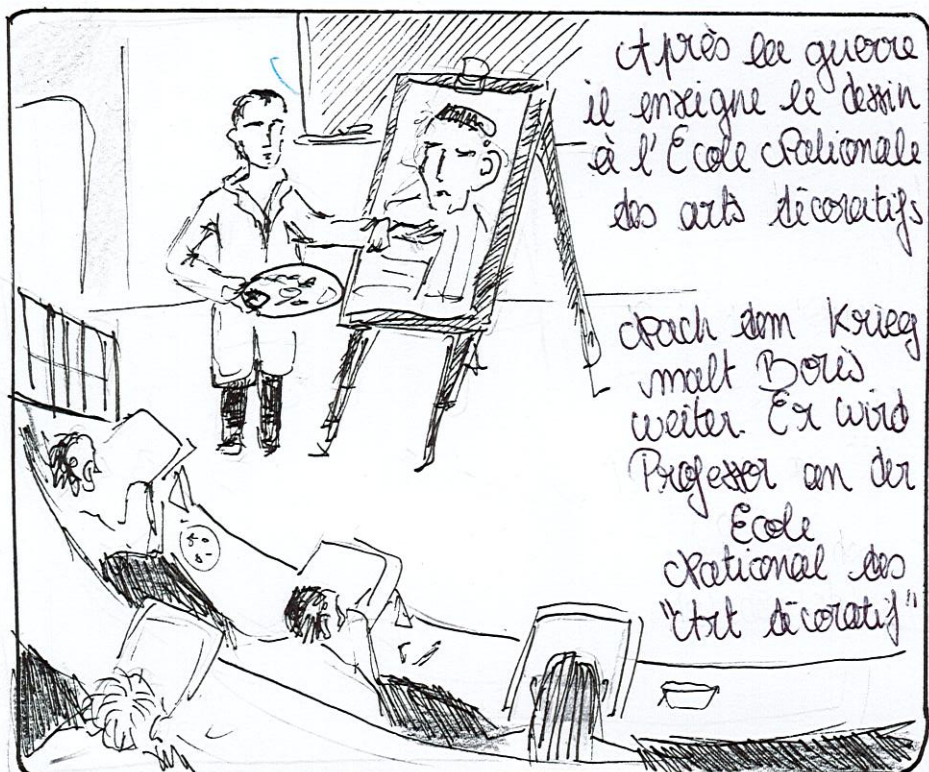 Après la guerre
il enseigne le dessin
à l'École Nationale
des arts décoratifs
Nach dem Krieg
malt Boris
weiter. Er wird
Professor an der
École
National des
"Art décoratif"